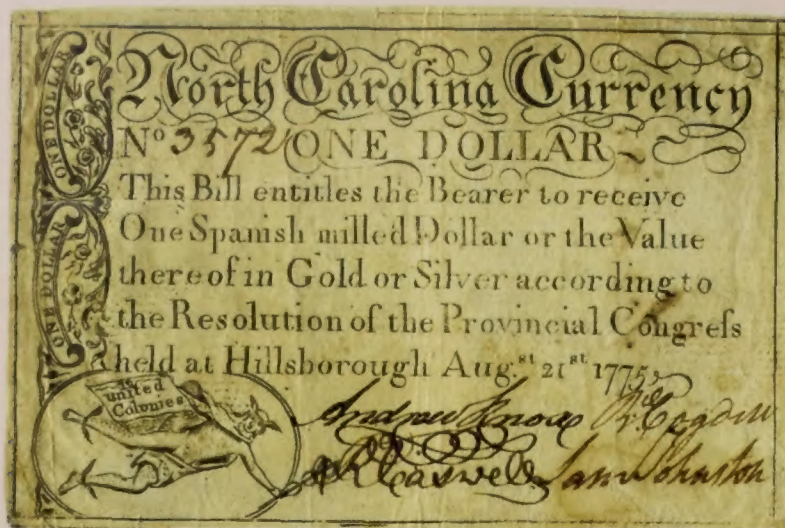 North Carolina Currency
No 3572 ONE DOLLAR
This Bill entitles the Bearer to receive
One Spanish milled Dollar or the Value
thereof in Gold or Silver according to
the Resolution of the Provincial Congreſs
held at Hillsborough Aug.st 21st 1775.
ONE DOLLAR
ONE DOLLAR
united
Colonies
Andrew Knox Rd Cogdell
R Caswell Sam Johnston